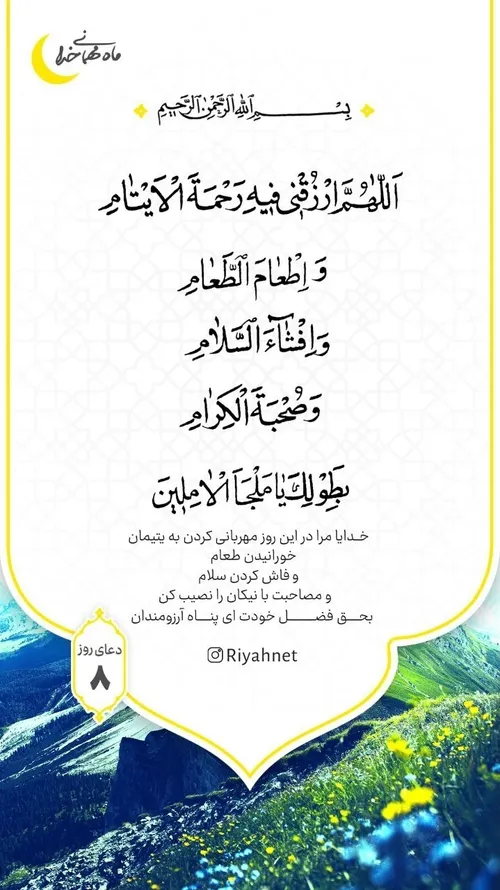 ماه مهمانی خدا
بِسْمِ اللهِ الرَّحْمٰنِ الرَّحِیمِ
اَللّٰهُمَّ ارْزُقْنی فیهِ رَحْمَةَ الْاَیْتٰامِ
وَ اِطْعٰامَ الطَّعٰامِ
وَ اِفْشٰاءَ السَّلٰامِ
وَ صُحْبَةَ الْکِرٰامِ
بِطَوْلِکَ یٰا مَلْجَاَ الْاٰمِلینَ
خدایا مرا در این روز مهربانی کردن به یتیمان
خورانیدن طعام
و فاش کردن سلام
و مصاحبت با نیکان را نصیب کن
بحق فضل خودت ای پناه آرزومندان
دعای روز
۸
Riyahnet